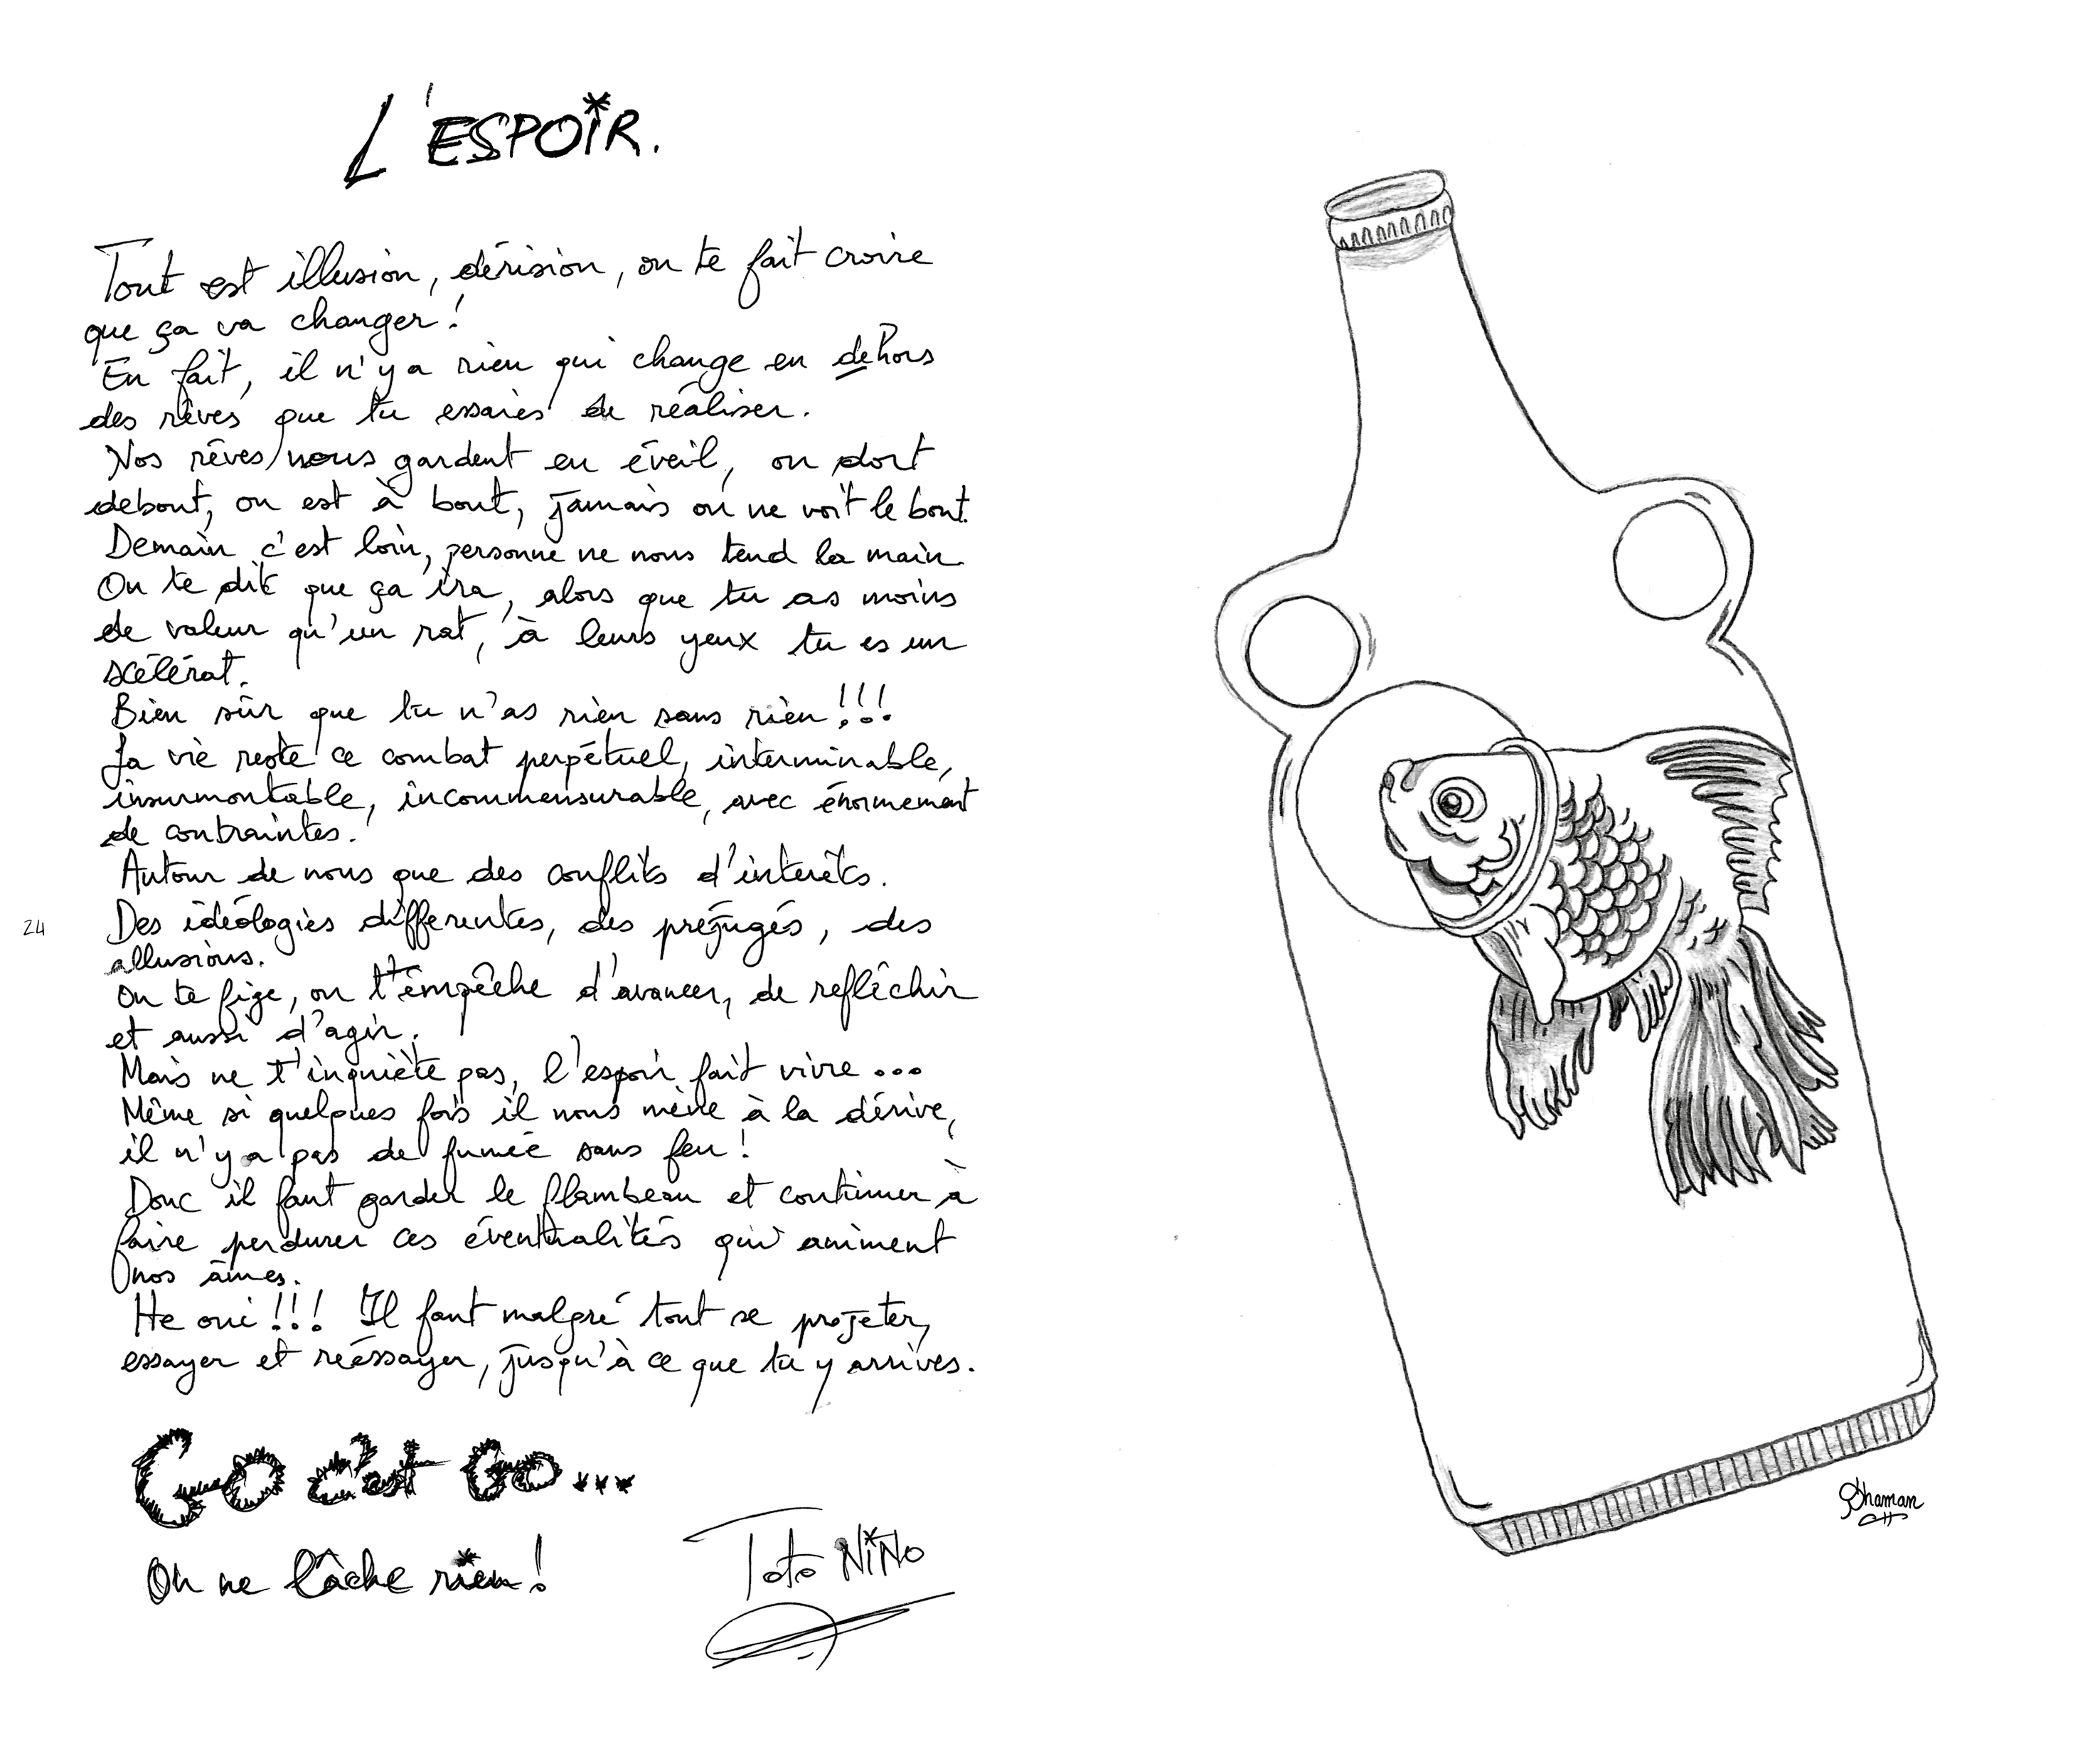 L'ESPOIR.
Tout est illusion, dérision, on te fait croire
que ça va changer!
En fait, il n'y a rien qui change en dehors
des rêves que tu essaies de réaliser.
Nos rêves nous gardent en éveil, on dort
debout, on est à bout, jamais on ne voit le bout.
Demain c'est loin, personne ne nous tend la main.
On te dit que ça ira, alors que tu as moins
de valeur qu'un rat, à leurs yeux tu es un
scélérat.
Bien sûr que tu n'as rien sans rien!!!
La vie reste ce combat perpétuel, interminable,
insurmontable, incommensurable, avec énormement
de contraintes.
Autour de nous que des conflits d'interêts.
Des idéologies différentes, des préjugés, des
allusions.
On te fige, on t'empêche d'avancer, de refléchir
et aussi d'agir.
Mais ne t'inquiète pas, l'espoir fait vivre...
Même si quelques fois il nous mène à la dérive,
il n'y a pas de fumée sans feu!
Donc il faut garder le flambeau et continuer à
faire perdurer ces éventualités qui animent
nos âmes.
He oui!!! Il faut malgré tout se projeter,
essayer et reéssayer, jusqu'à ce que tu y arrives.
Go c'est Go...
On ne lâche rien!
Toto NiNo
24
Shaman